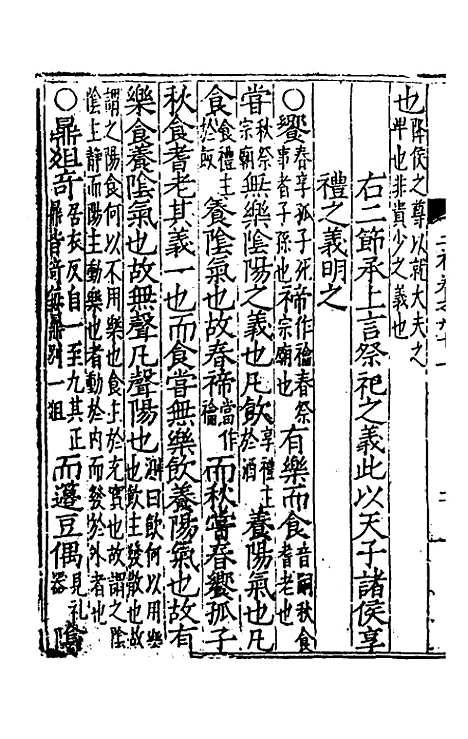 也降侯之尊以就大夫之
卑也非貴少之義也
右二節承上言祭祀之義此以天子諸侯享
禮之義明之
○饗春享孤子死
事者子孫也禘作禴春祭
宗廟也有樂而食音嗣秋食
耆老也
嘗秋祭
宗廟無樂陰陽之義也凡飲享禮主
於酒養陽氣也凡
食食禮主
於飯養陰氣也故春禘當作
禴而秋嘗春饗孤子
秋食耆老其義一也而食嘗無樂飲養陽氣也故有
樂食養陰氣也故無聲凡聲陽也澔曰飲何以用樂
也飲主發散也故
謂之陽食何以不用樂也食主於充實也故謂之陰
陰主靜而陽主動樂也者動於內而發於外者也
○鼎俎奇居衣反自一至九其正
鼎皆奇每鼎別一俎而籩豆偶見禮
器陰